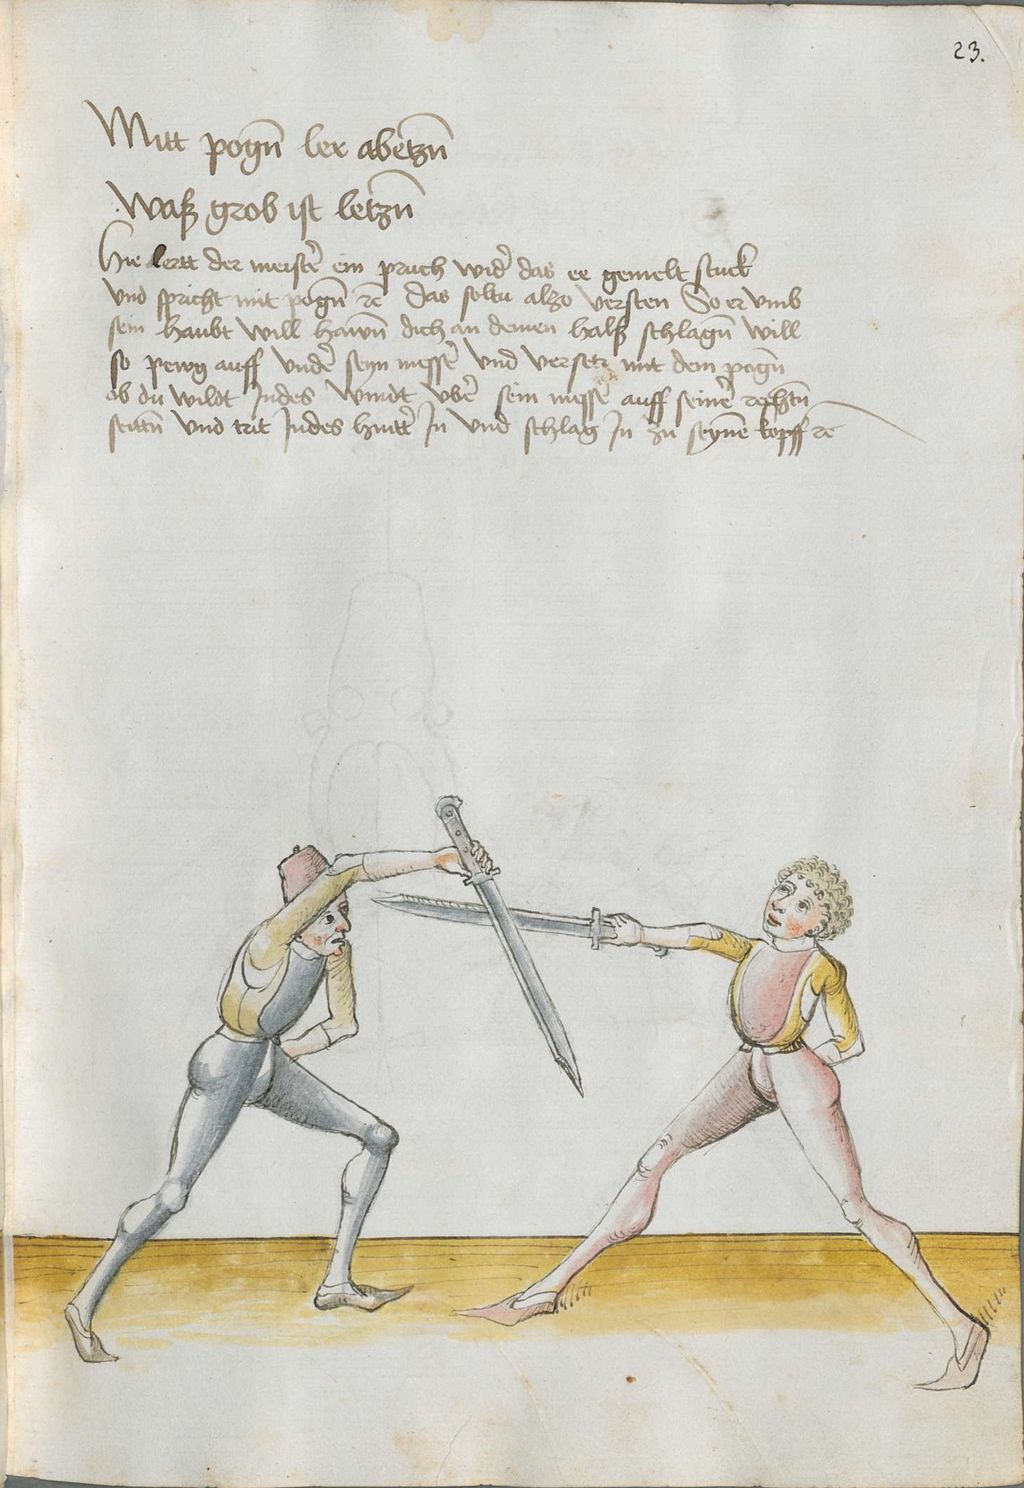 23.
Mitt pogn̄ ler abetzn̄
Waß grob ist letzn̄
Hie lertt der meist̄e ein pruch wid̄ das ee gemelt stuck
vnd spricht mit pogn̄ rc̄ das soltu alzo versten So er vmb
sein haubt will hawn̄ dich an deinen halß schlagn̄ will
so pewg auff vnd̄e seyn mess̄e vnd versetz mit dem pogn̄
ob du wildt Indes windt vb̄e sein mess̄e auff sein̄e rechtn̄
seittn̄ vnd trit Indes hintt̄e In vnd schlag In zu seyn̄e kopff rc̄